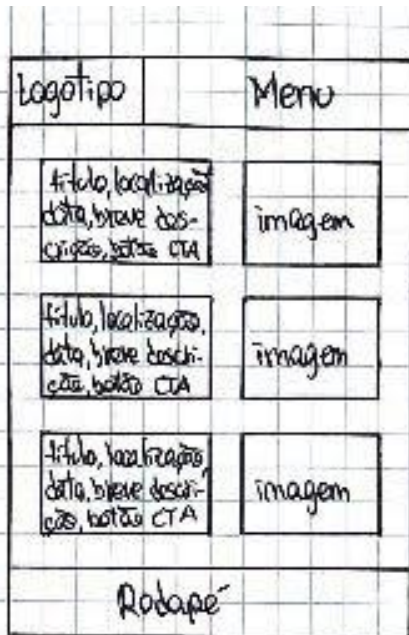 Logotipo
Menu
título, localização
data, breve des-
crição, botão CTA
imagem
título, localização,
data, breve descri-
ção, botão CTA
imagem
título, localização,
data, breve descri-
ção, botão CTA
imagem
Rodapé